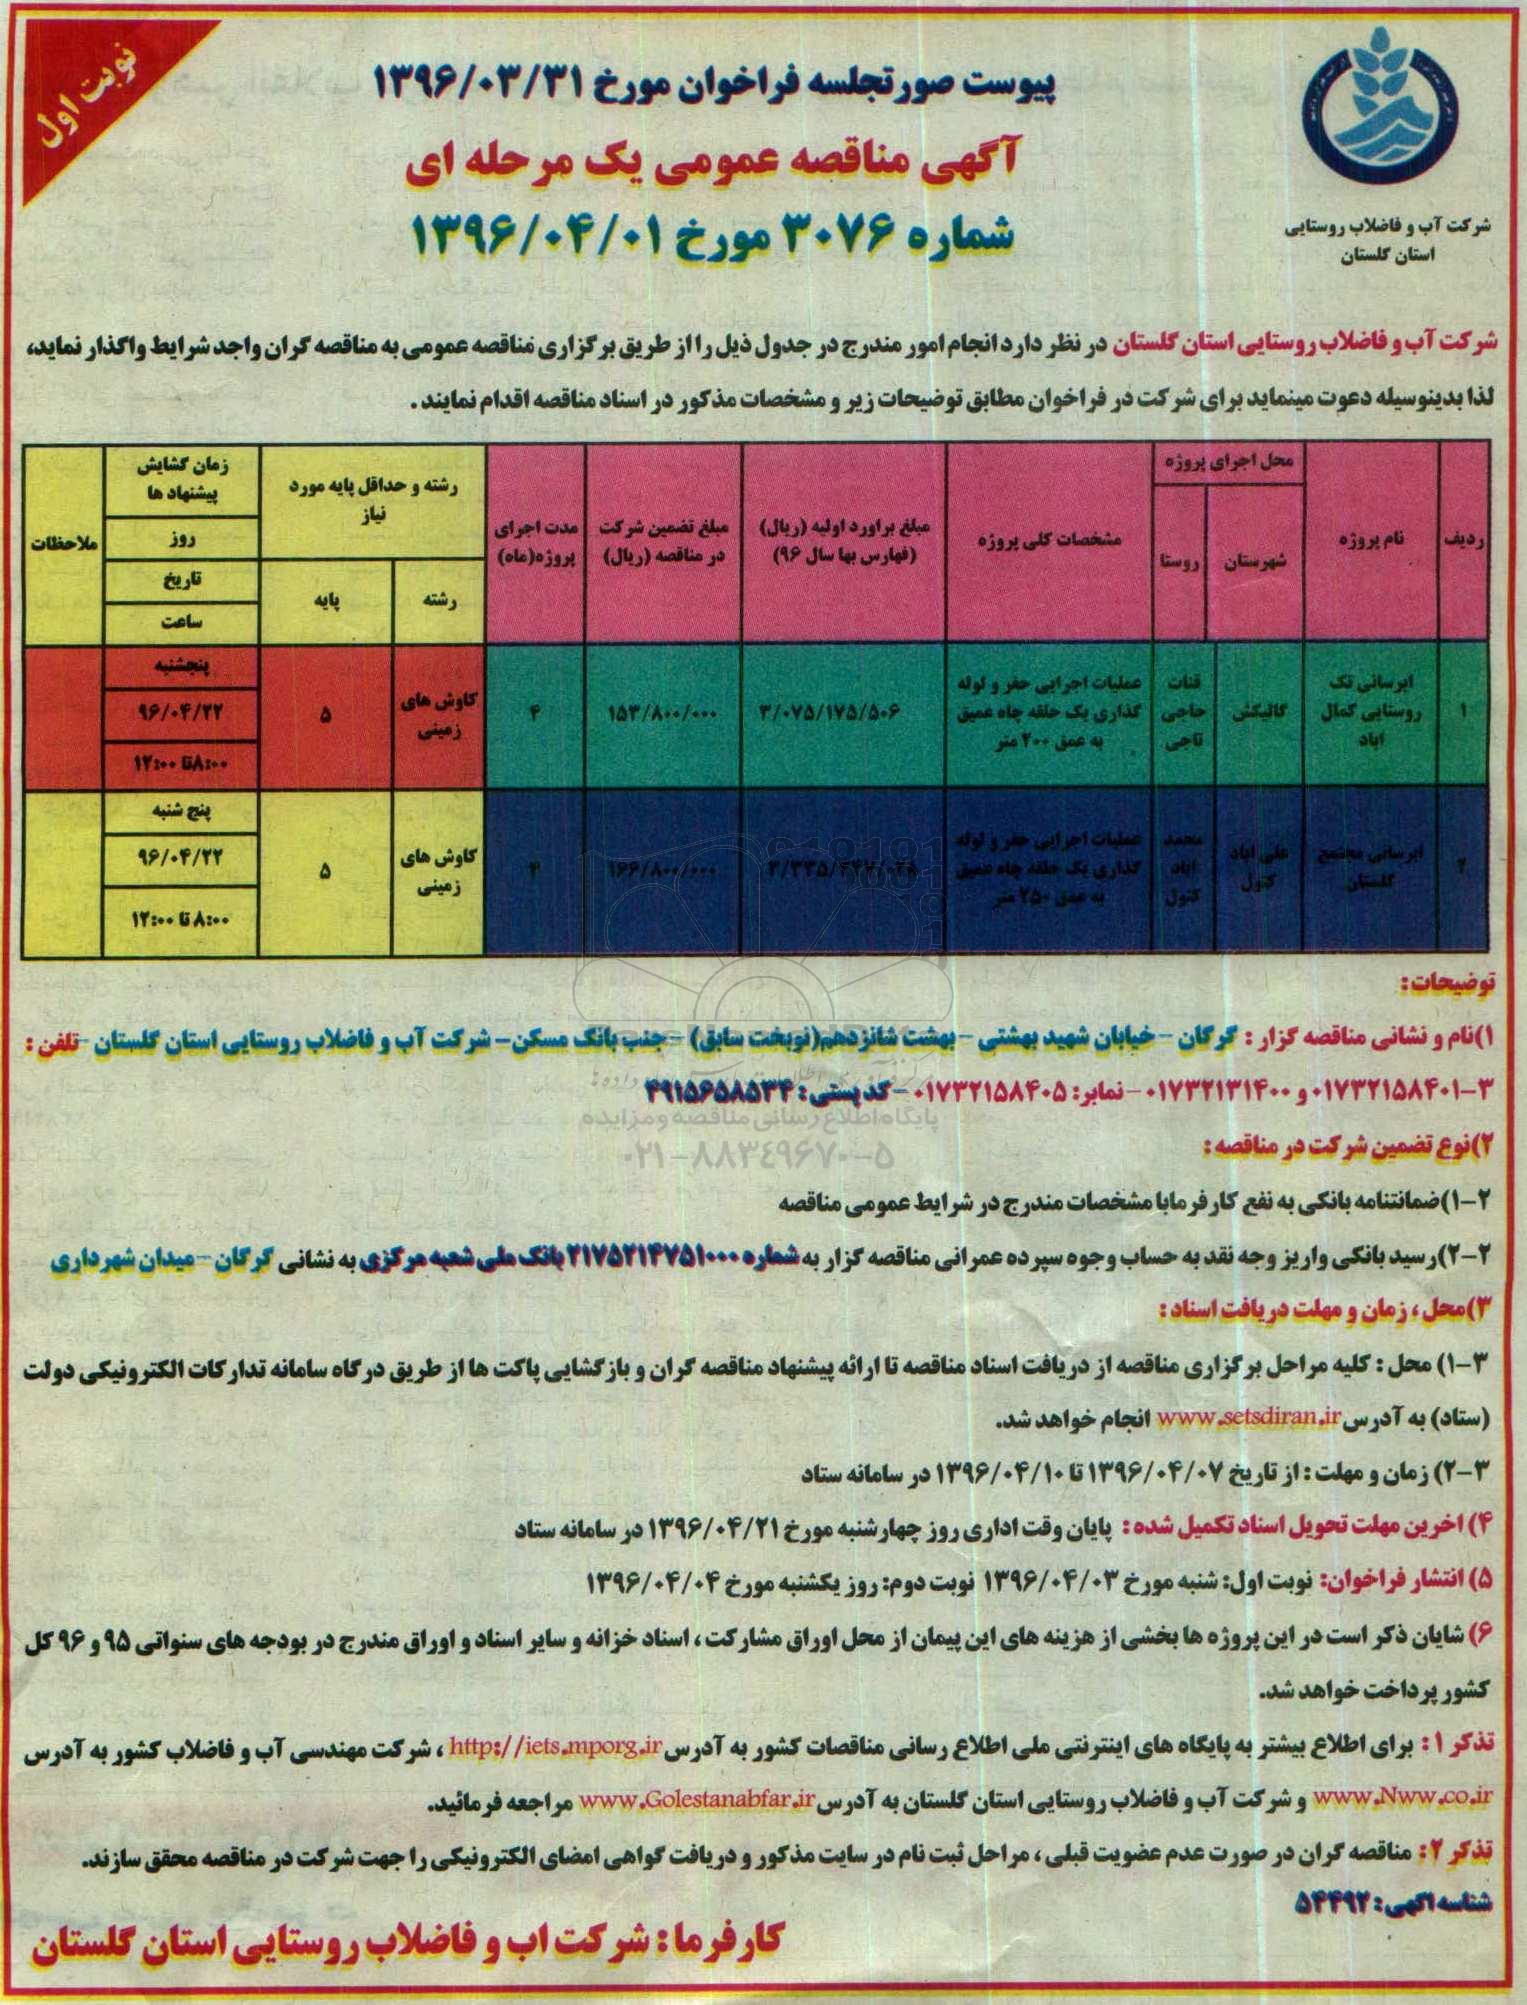 نوبت اول
پیوست صورتجلسه فراخوان مورخ ۱۳۹۶/۰۳/۳۱
آگهی مناقصه عمومی یک مرحله ای
شماره ۳۰۷۶ مورخ ۱۳۹۶/۰۴/۰۱
شرکت آب و فاضلاب روستایی
استان گلستان
شرکت آب و فاضلاب روستایی استان گلستان در نظر دارد انجام امور مندرج در جدول ذیل را از طریق برگزاری مناقصه عمومی به مناقصه گران واجد شرایط واگذار نماید،
لذا بدینوسیله دعوت مینماید برای شرکت در فراخوان مطابق توضیحات زیر و مشخصات مذکور در اسناد مناقصه اقدام نمایند.
ردیف
نام پروژه
محل اجرای پروژه
شهرستان
روستا
مشخصات کلی پروژه
مبلغ براورد اولیه (ریال)
(فهارس بها سال ۹۶)
مبلغ تضمین شرکت
در مناقصه (ریال)
مدت اجرای
پروژه(ماه)
رشته و حداقل پایه مورد
نیاز
رشته
پایه
زمان گشایش
پیشنهاد ها
روز
تاریخ
ساعت
ملاحظات
۱
ابرسانی تک
روستایی کمال
اباد
گالیکش
قنات
حاجی
تاجی
عملیات اجرایی حفر و لوله
گذاری یک حلقه چاه عمیق
به عمق ۲۰۰ متر
۳/۰۷۵/۱۷۵/۵۰۶
۱۵۳/۸۰۰/۰۰۰
۴
کاوش های
زمینی
۵
پنجشنبه
۹۶/۰۴/۲۲
۸:۰۰ تا ۱۲:۰۰
۲
ابرسانی مجتمع
گلستان
علی اباد
کتول
محمد
اباد
کتول
عملیات اجرایی حفر و لوله
گذاری یک حلقه چاه عمیق
به عمق ۲۵۰ متر
۱۶۶/۸۰۰/۰۰۰
۴
کاوش های
زمینی
۵
پنج شنبه
۹۶/۰۴/۲۲
۸:۰۰ تا ۱۲:۰۰
توضیحات:
۱)نام و نشانی مناقصه گزار : گرگان - خیابان شهید بهشتی - بهشت شانزدهم(نوبخت سابق) - جنب بانک مسکن- شرکت آب و فاضلاب روستایی استان گلستان -تلفن :
۰۱۷۳۲۱۵۸۴۰۱-۳ و ۰۱۷۳۲۱۳۱۴۰۰ - نمابر: ۰۱۷۳۲۱۵۸۴۰۵ - کد پستی : ۴۹۱۵۶۵۸۵۳۴
پایگاه اطلاع رسانی مناقصه و مزایده
۰۲۱-۸۸۳۴۹۶۷۰-۵
۲)نوع تضمین شرکت در مناقصه :
۲-۱)ضمانتنامه بانکی به نفع کارفرمابا مشخصات مندرج در شرایط عمومی مناقصه
۲-۲)رسید بانکی واریز وجه نقد به حساب وجوه سپرده عمرانی مناقصه گزار به شماره ۲۱۷۵۲۱۴۷۵۱۰۰۰ بانک ملی شعبه مرکزی به نشانی گرگان - میدان شهرداری
۳)محل ، زمان و مهلت دریافت اسناد :
۳-۱) محل : کلیه مراحل برگزاری مناقصه از دریافت اسناد مناقصه تا ارائه پیشنهاد مناقصه گران و بازگشایی پاکت ها از طریق درگاه سامانه تدارکات الکترونیکی دولت
(ستاد) به آدرس www.setsdiran.ir انجام خواهد شد.
۳-۲) زمان و مهلت : از تاریخ ۱۳۹۶/۰۴/۰۷ تا ۱۳۹۶/۰۴/۱۰ در سامانه ستاد
۴) اخرین مهلت تحویل اسناد تکمیل شده : پایان وقت اداری روز چهارشنبه مورخ ۱۳۹۶/۰۴/۲۱ در سامانه ستاد
۵) انتشار فراخوان: نوبت اول: شنبه مورخ ۱۳۹۶/۰۴/۰۳ نوبت دوم: روز یکشنبه مورخ ۱۳۹۶/۰۴/۰۴
۶) شایان ذکر است در این پروژه ها بخشی از هزینه های این پیمان از محل اوراق مشارکت ، اسناد خزانه و سایر اسناد و اوراق مندرج در بودجه های سنواتی ۹۵ و ۹۶ کل
کشور پرداخت خواهد شد.
تذکر ۱ : برای اطلاع بیشتر به پایگاه های اینترنتی ملی اطلاع رسانی مناقصات کشور به آدرس http://iets.mporg.ir ، شرکت مهندسی آب و فاضلاب کشور به آدرس
www.Nww.co.ir و شرکت آب و فاضلاب روستایی استان گلستان به آدرس www.Golestanabfar.ir مراجعه فرمائید.
تذکر ۲ : مناقصه گران در صورت عدم عضویت قبلی ، مراحل ثبت نام در سایت مذکور و دریافت گواهی امضای الکترونیکی را جهت شرکت در مناقصه محقق سازند.
شناسه اگهی : ۵۴۴۹۲
کارفرما : شرکت اب و فاضلاب روستایی استان گلستان